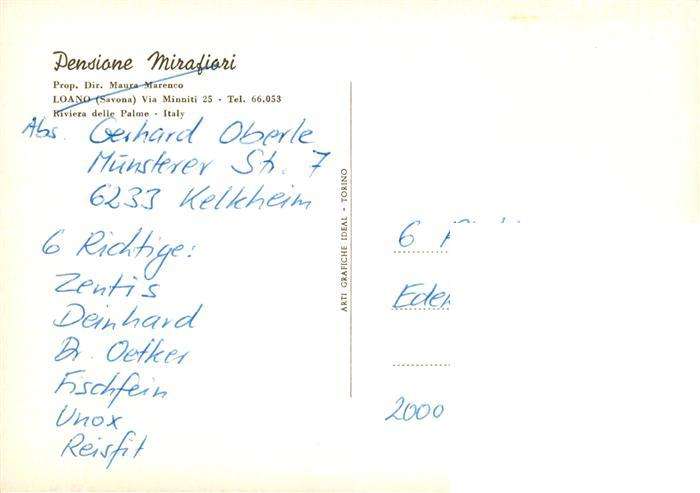 Pensione Mirafiori
Prop. Dir. Maura Marenco
LOANO (Savona) Via Minniti 25 - Tel. 66.053
Riviera delle Palme - Italy
Abs. Gerhard Oberle
Münsterer Str. 7
6233 Kelkheim
6 Richtige:
Zentis
Deinhard
Dr. Oetker
Fischfein
Unox
Reisfit
ARTI GRAFICHE IDEAL - TORINO
6
2000